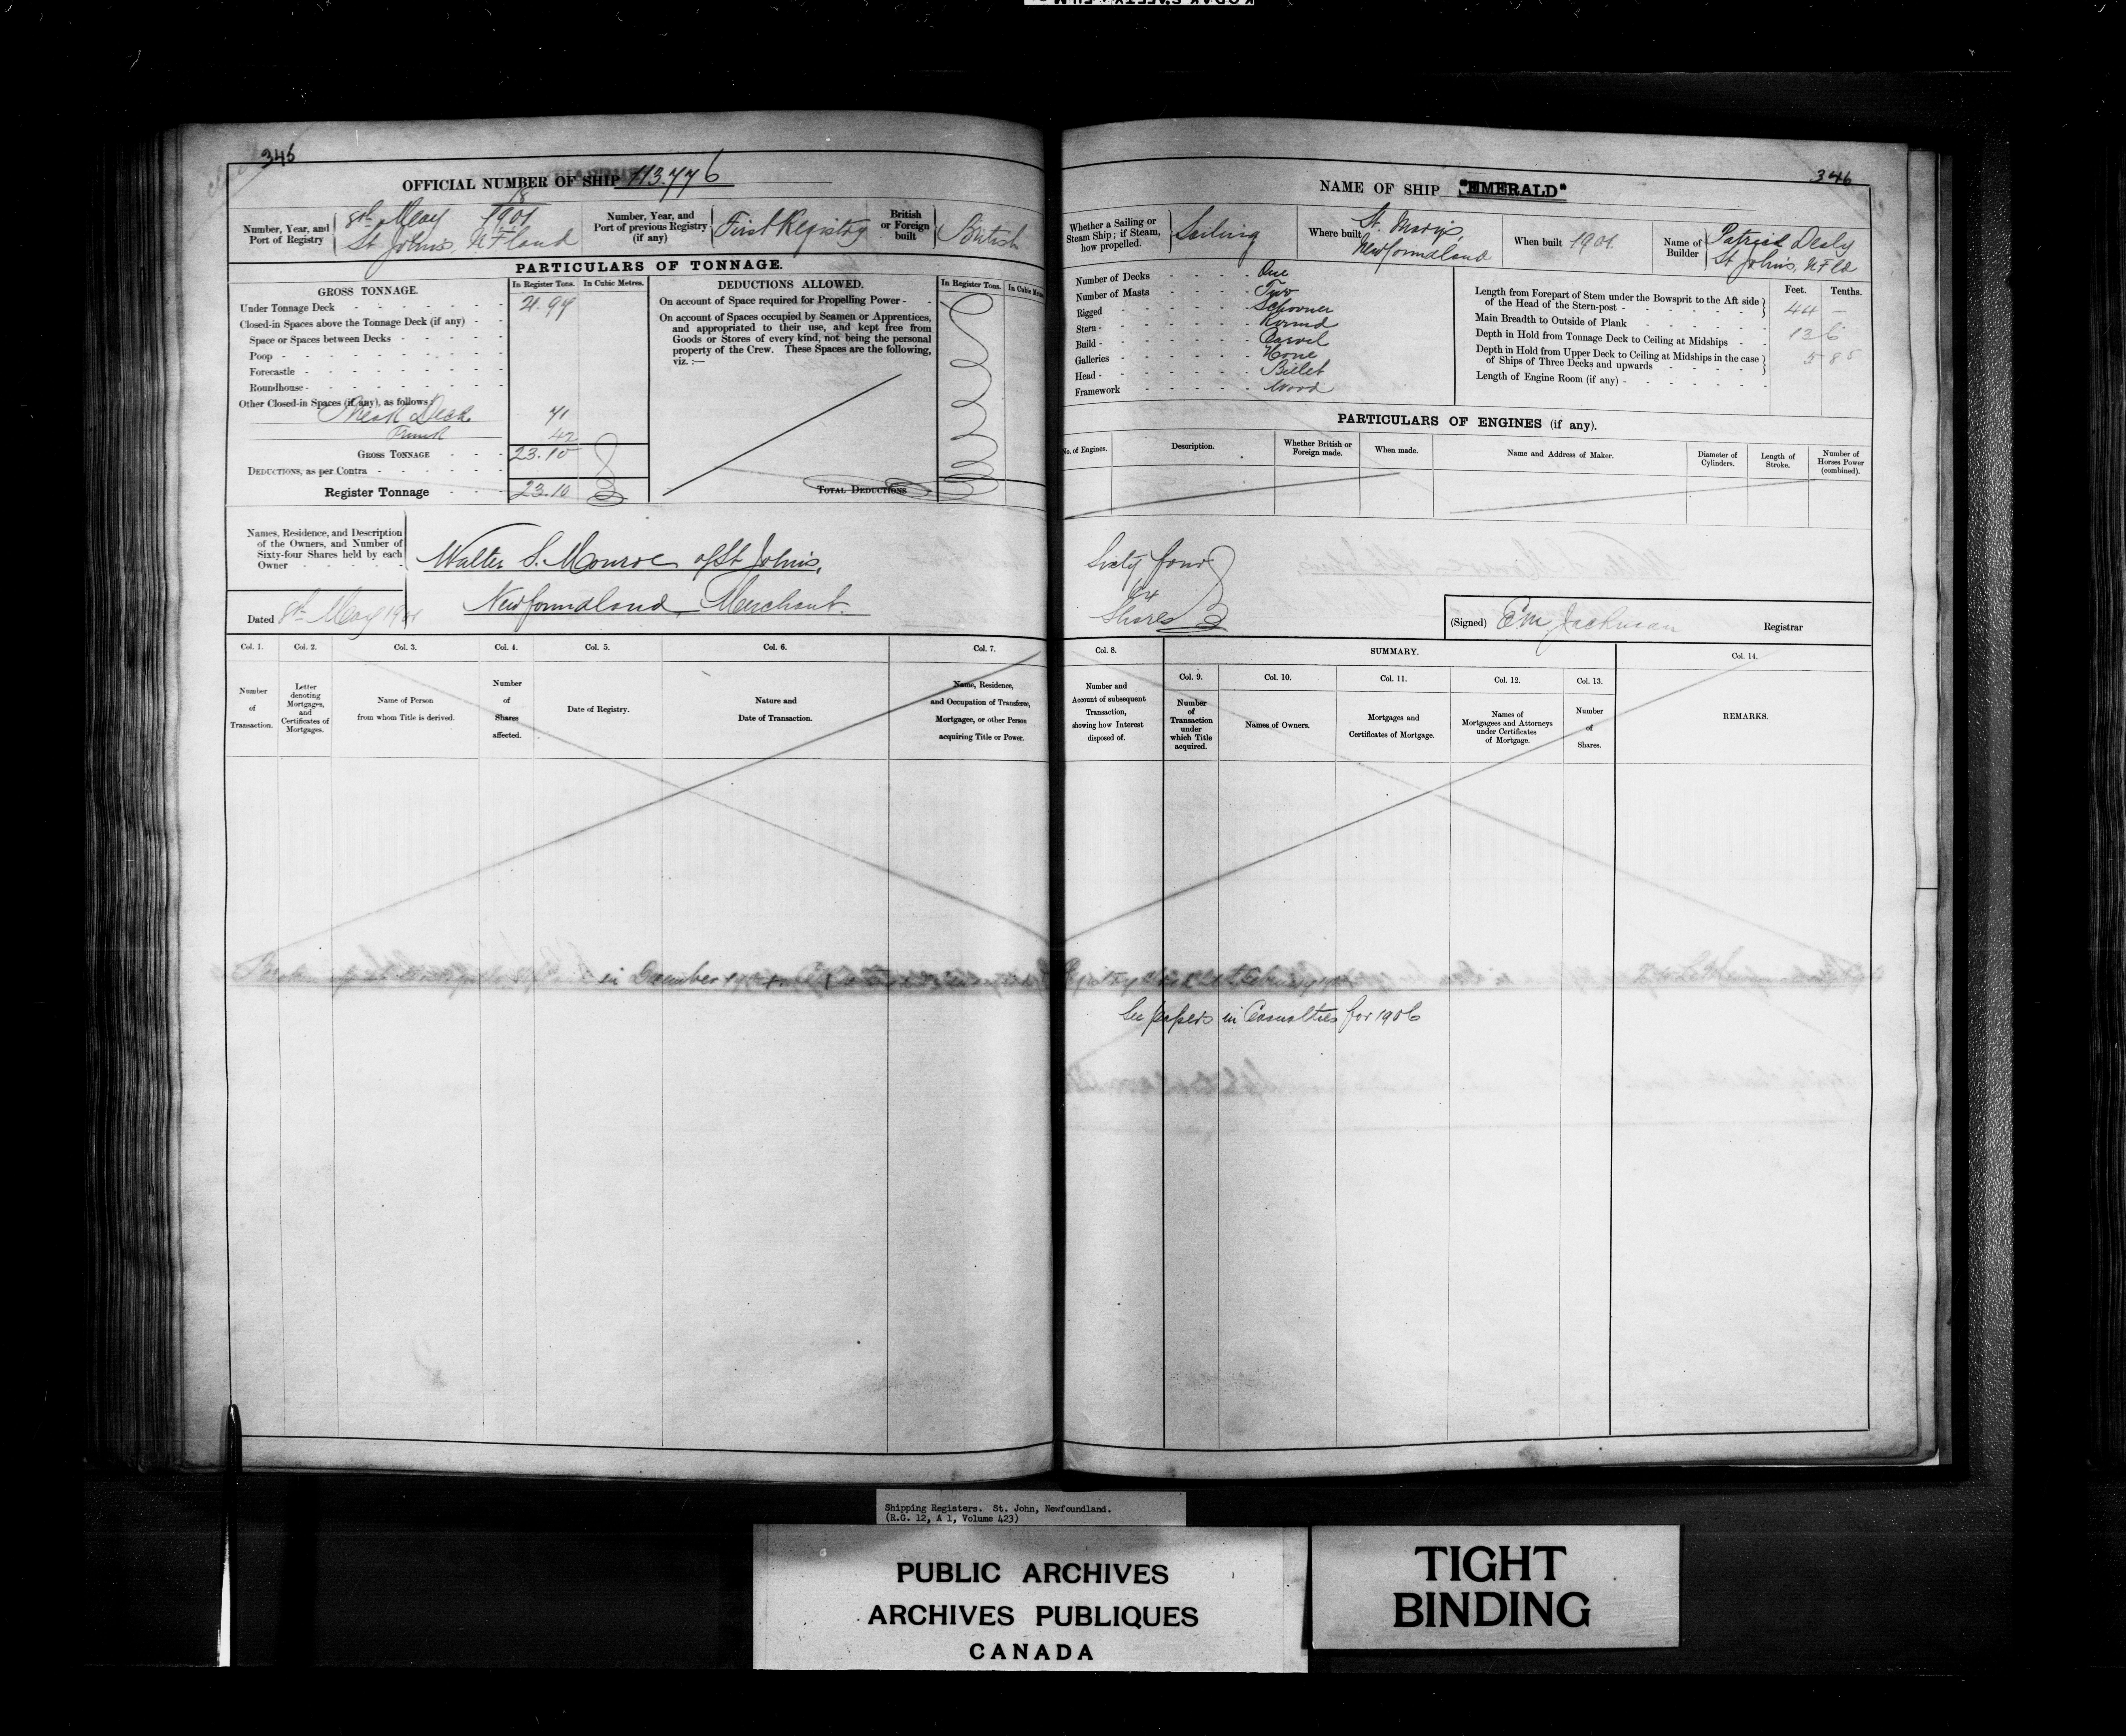 346
OFFICIAL NUMBER OF SHIP 113.776
Number, Year, and Port of Registry
18
8th May 1901
St John's, NFland
Number, Year, and Port of previous Registry (if any)
First Registry
British or Foreign built
British
PARTICULARS OF TONNAGE.
GROSS TONNAGE.
In Register Tons. In Cubic Metres.
Under Tonnage Deck 21.97
Closed-in Spaces above the Tonnage Deck (if any)
Space or Spaces between Decks
Poop
Forecastle
Roundhouse
Other Closed-in Spaces (if any), as follows:
Deck 71
Trunk 42
GROSS TONNAGE 23.10
DEDUCTIONS, as per Contra
Register Tonnage 23.10
DEDUCTIONS ALLOWED.
In Register Tons.
On account of Space required for Propelling Power
On account of Spaces occupied by Seamen or Apprentices,
and appropriated to their use, and kept free from
Goods or Stores of every kind, not being the personal
property of the Crew. These Spaces are the following,
viz. :—
TOTAL DEDUCTIONS
Names, Residence, and Description
of the Owners, and Number of
Sixty-four Shares held by each
Owner
Walter S. Monroe of St John's,
Newfoundland, Merchant.
Dated 8th May 1901
Col. 1. Col. 2. Col. 3. Col. 4. Col. 5. Col. 6. Col. 7.
Number of Transaction.
Letter denoting Mortgages, and Certificates of Mortgages.
Name of Person from whom Title is derived.
Number of Shares affected.
Date of Registry.
Nature and Date of Transaction.
Name, Residence, and Occupation of Transferee, Mortgagee, or other Person acquiring Title or Power.
in December 190
346
NAME OF SHIP "EMERALD"
Whether a Sailing or Steam Ship; if Steam, how propelled.
Sailing
Where built
St. Mary's,
Newfoundland
When built 1901.
Name of Builder
Patrick Dealy
St John's, NFld
Number of Decks One
Number of Masts Two
Rigged Schooner
Stern Round
Build Carvel
Galleries None
Head Billet
Framework Wood
Feet. Tenths.
Length from Forepart of Stem under the Bowsprit to the Aft side
of the Head of the Stern-post 44 —
Main Breadth to Outside of Plank 13 6
Depth in Hold from Tonnage Deck to Ceiling at Midships 5 85
Depth in Hold from Upper Deck to Ceiling at Midships in the case
of Ships of Three Decks and upwards
Length of Engine Room (if any)
PARTICULARS OF ENGINES (if any).
No. of Engines.
Description.
Whether British or Foreign made.
When made.
Name and Address of Maker.
Diameter of Cylinders.
Length of Stroke.
Number of Horses Power (combined).
Sixty four
64
Shares
(Signed) E M Jackman Registrar
Col. 8.
SUMMARY.
Col. 14.
Col. 9. Col. 10. Col. 11. Col. 12. Col. 13.
Number and Account of subsequent Transaction, showing how Interest disposed of.
Number of Transaction under which Title acquired.
Names of Owners.
Mortgages and Certificates of Mortgage.
Names of Mortgagees and Attorneys under Certificates of Mortgage.
Number of Shares.
REMARKS.
See papers in Casualties for 1906
Shipping Registers. St. John, Newfoundland.
(R.G. 12, A 1, Volume 423)
PUBLIC ARCHIVES
ARCHIVES PUBLIQUES
CANADA
TIGHT
BINDING